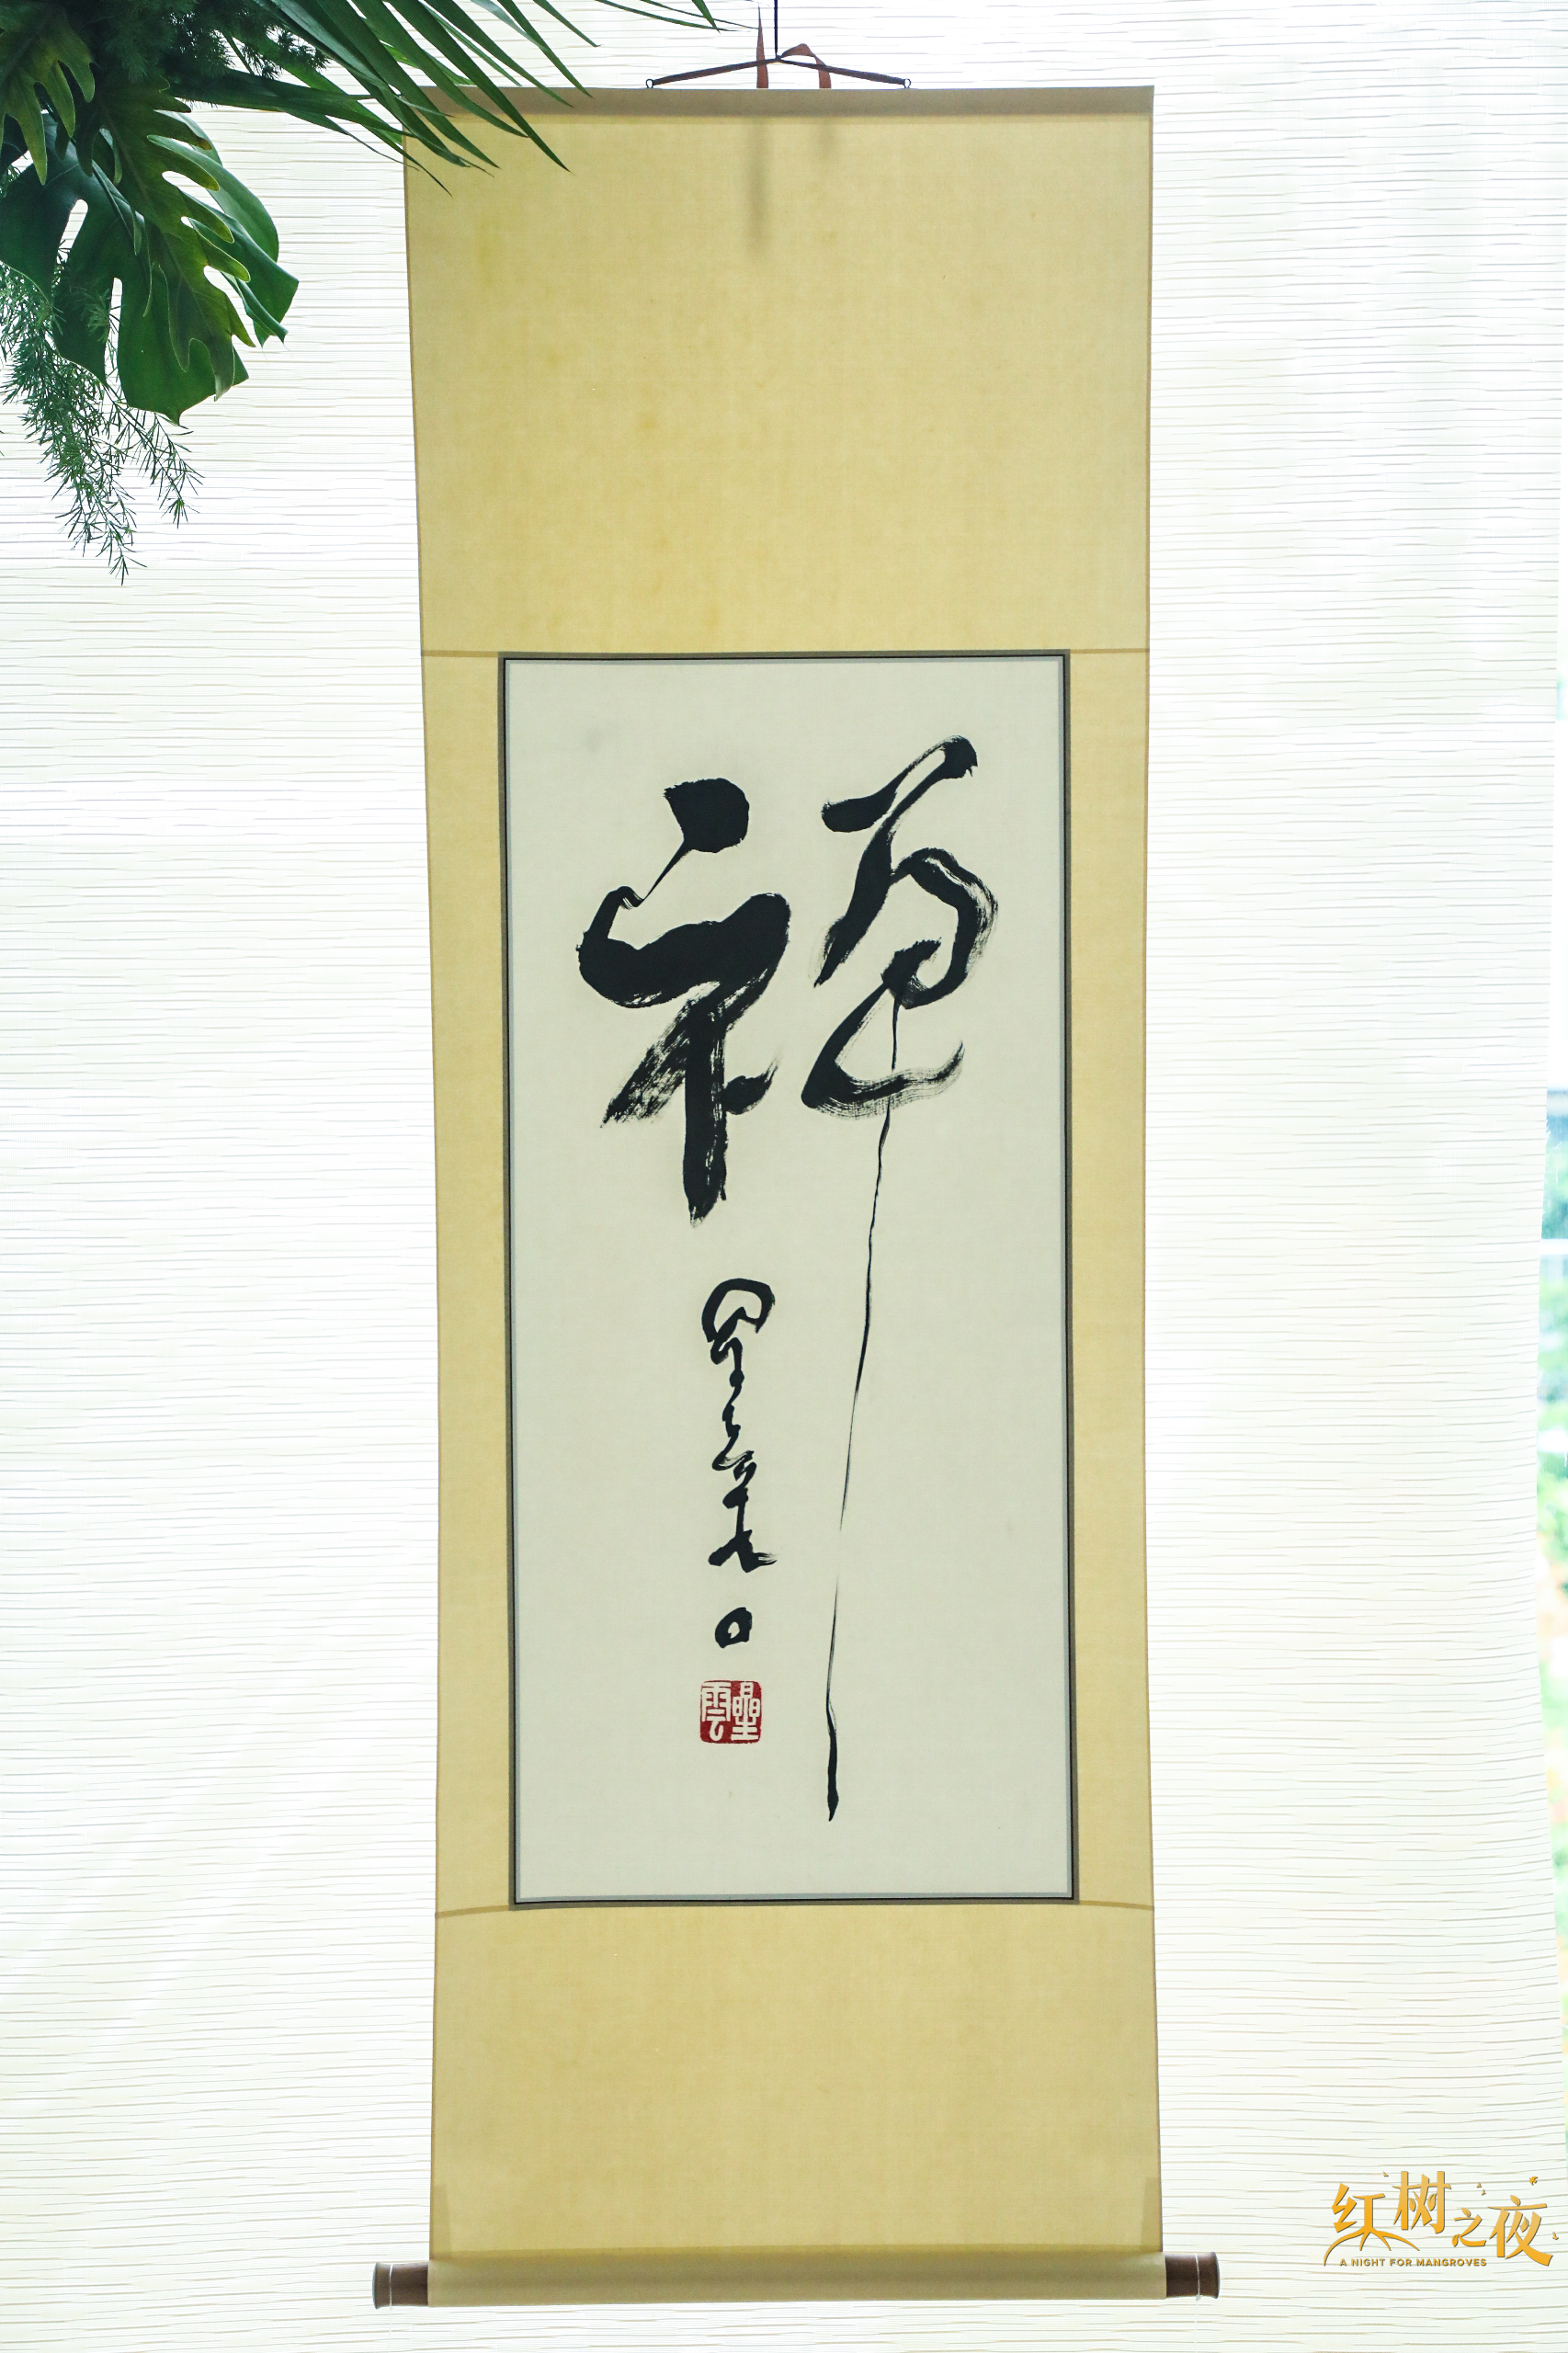 禪
星雲
星雲
红树之夜
A NIGHT FOR MANGROVES